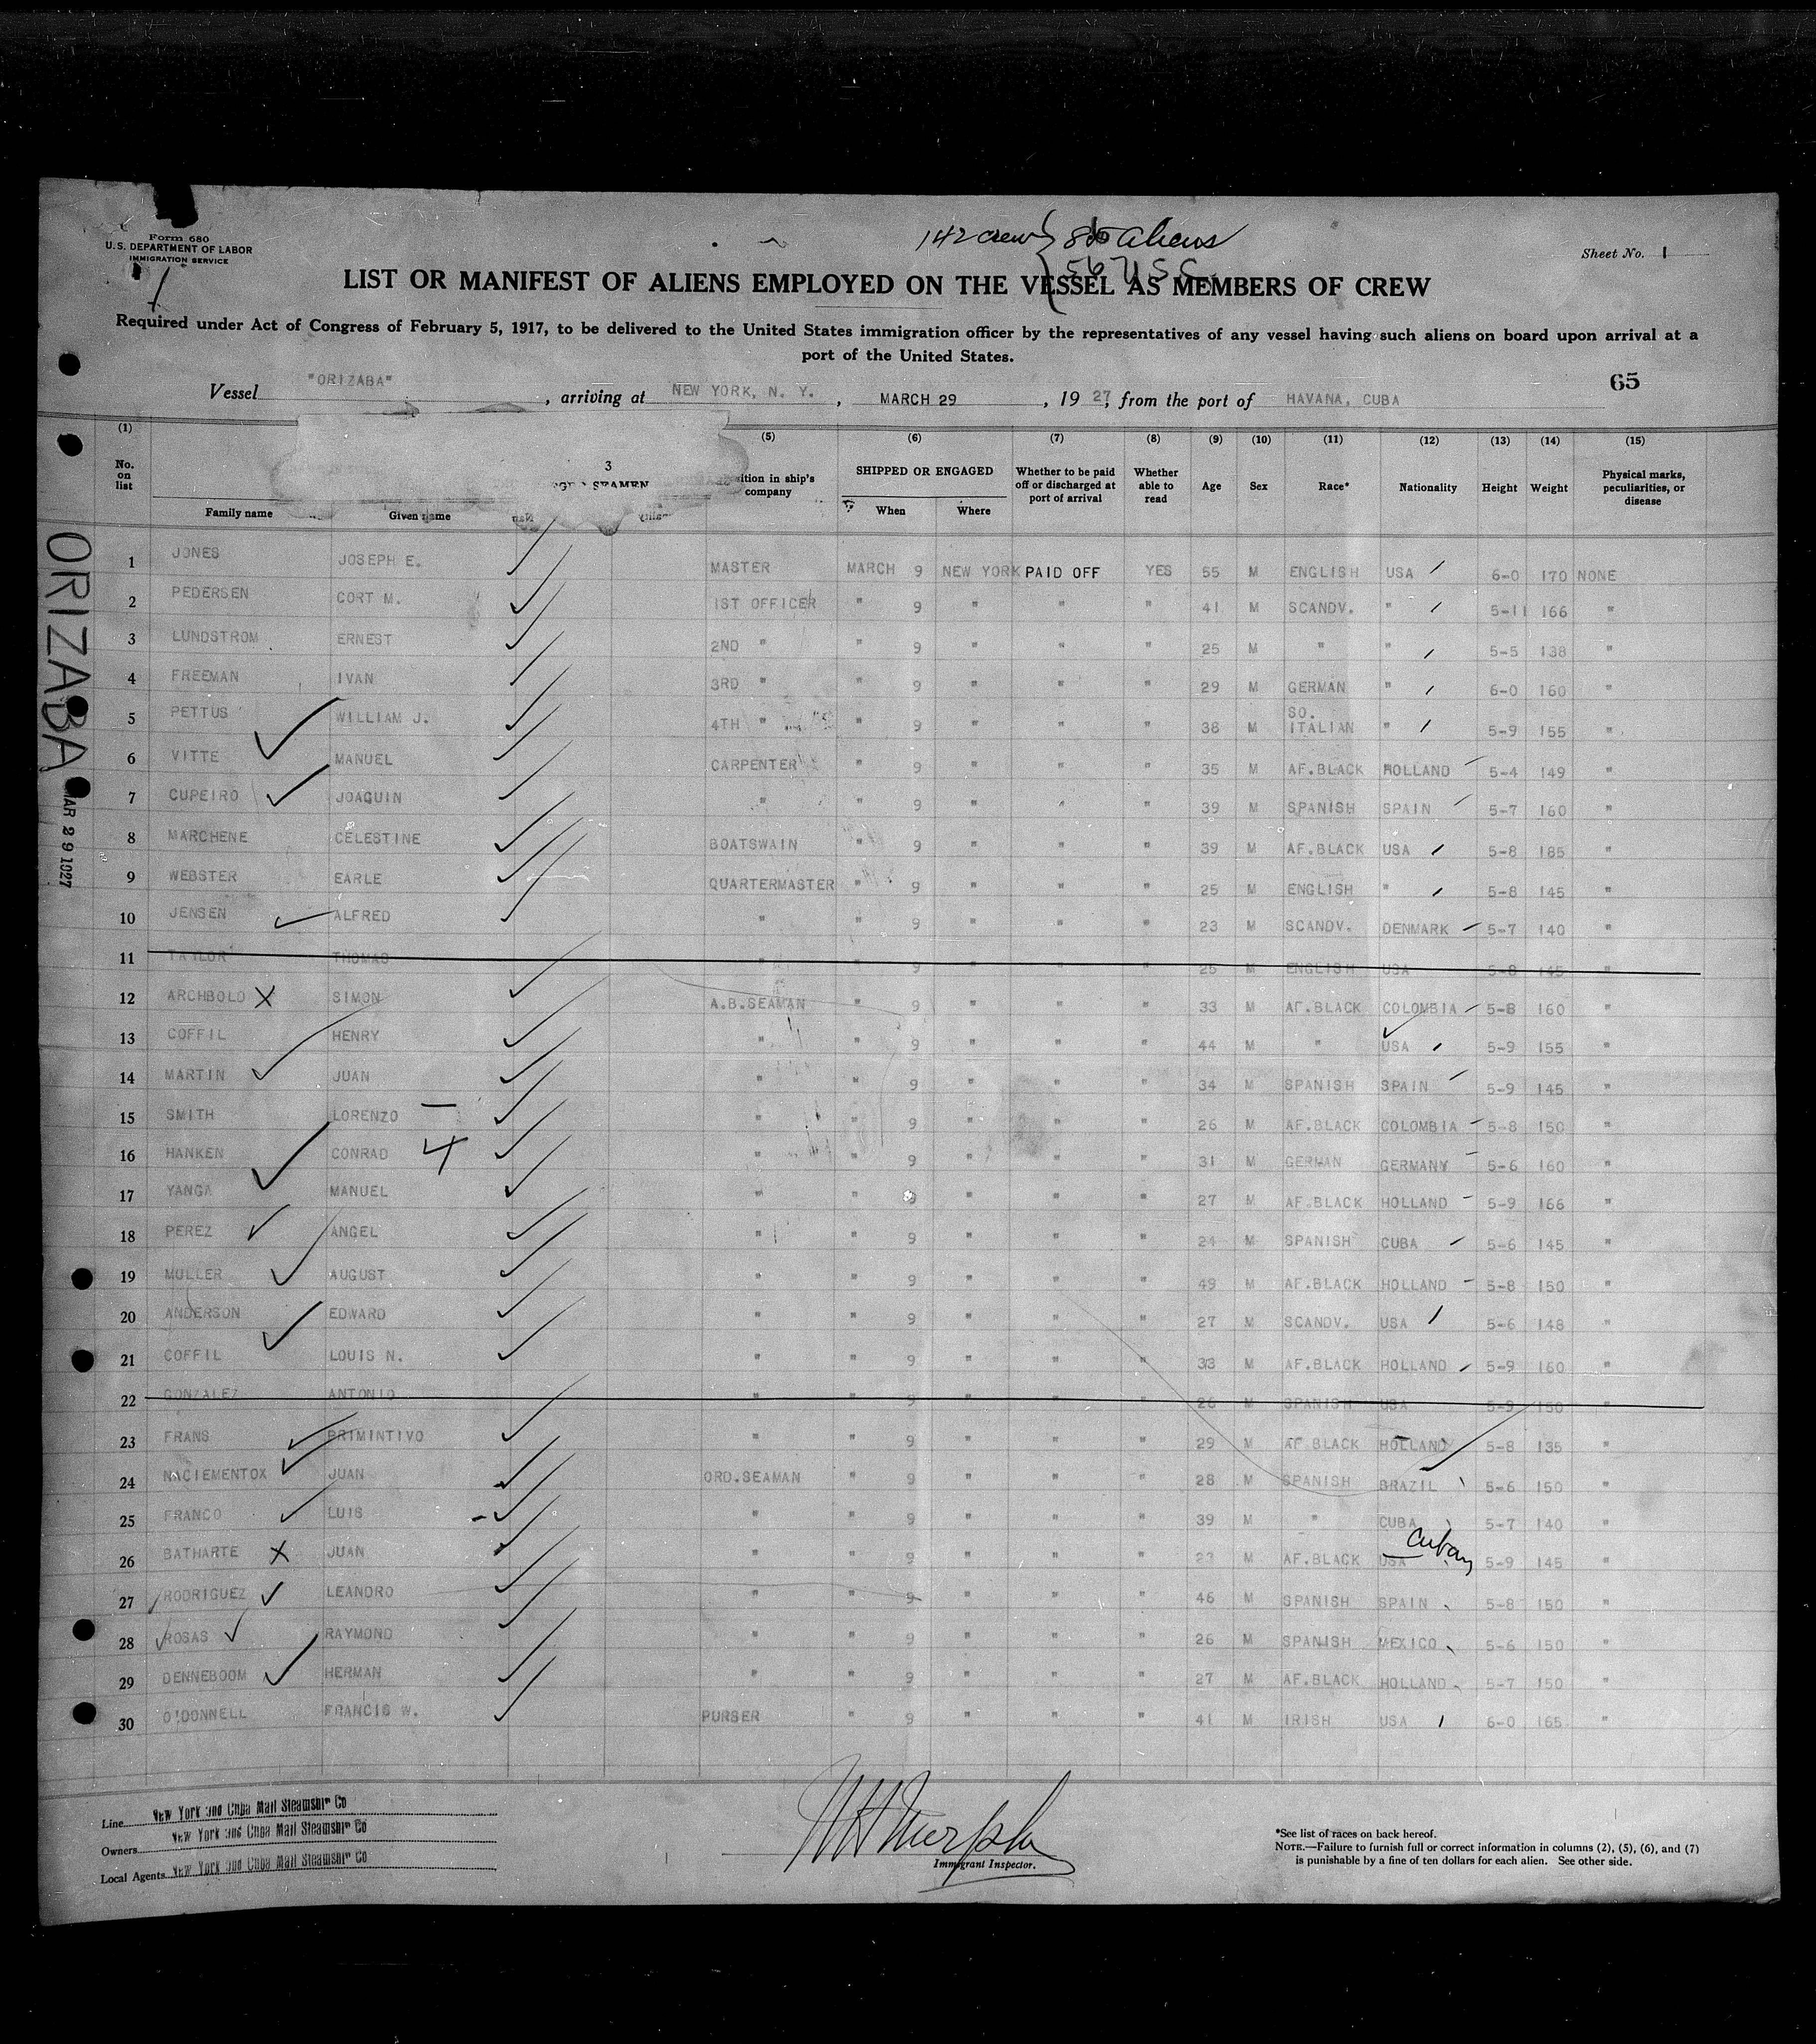 142 crew { 86 aliens
56 U.S.C.
Form 680
U.S. DEPARTMENT OF LABOR
IMMIGRATION SERVICE
Sheet No. 1
LIST OR MANIFEST OF ALIENS EMPLOYED ON THE VESSEL AS MEMBERS OF CREW
Required under Act of Congress of February 5, 1917, to be delivered to the United States immigration officer by the representatives of any vessel having such aliens on board upon arrival at a
port of the United States.
65
Vessel "ORIZABA", arriving at NEW YORK, N. Y., MARCH 29, 1927, from the port of HAVANA, CUBA
(1) (5) (6) (7) (8) (9) (10) (11) (12) (13) (14) (15)
No. on list Family name Given name 3 SEAMEN ition in ship's company SHIPPED OR ENGAGED When Where Whether to be paid off or discharged at port of arrival Whether able to read Age Sex Race* Nationality Height Weight Physical marks, peculiarities, or disease
1 JONES JOSEPH E. MASTER MARCH 9 NEW YORK PAID OFF YES 55 M ENGLISH USA 6-0 170 NONE
2 PEDERSEN CORT M. 1ST OFFICER " 9 " " " 41 M SCANDV. " 5-11 166 "
3 LUNDSTROM ERNEST 2ND " " 9 " " " 25 M " " 5-5 138 "
4 FREEMAN IVAN 3RD " " 9 " " " 29 M GERMAN " 6-0 160 "
5 PETTUS WILLIAM J. 4TH " " 9 " " " 38 M SO. ITALIAN " 5-9 155 "
6 VITTE MANUEL CARPENTER " 9 " " " 35 M AF.BLACK HOLLAND 5-4 149 "
7 CUPEIRO JOAQUIN " " 9 " " " 39 M SPANISH SPAIN 5-7 160 "
8 MARCHENE CELESTINE BOATSWAIN " 9 " " " 39 M AF.BLACK USA 5-8 185 "
9 WEBSTER EARLE QUARTERMASTER " 9 " " " 25 M ENGLISH " 5-8 145 "
10 JENSEN ALFRED " " 9 " " " 23 M SCANDV. DENMARK 5-7 140 "
11 TAYLOR THOMAS " " 9 " " " 25 M ENGLISH USA 5-8 145 "
12 ARCHBOLD X SIMON A.B.SEAMAN " 9 " " " 33 M AF.BLACK COLOMBIA 5-8 160 "
13 COFFIL HENRY " " 9 " " " 44 M " USA 5-9 155 "
14 MARTIN JUAN " " 9 " " " 34 M SPANISH SPAIN 5-9 145 "
15 SMITH LORENZO " " 9 " " " 26 M AF.BLACK COLOMBIA 5-8 150 "
16 HANKEN CONRAD 4 " " 9 " " " 31 M GERMAN GERMANY 5-6 160 "
17 YANGA MANUEL " " 9 " " " 27 M AF.BLACK HOLLAND 5-9 166 "
18 PEREZ ANGEL " " 9 " " " 24 M SPANISH CUBA 5-6 145 "
19 MULLER AUGUST " " 9 " " " 49 M AF.BLACK HOLLAND 5-8 150 "
20 ANDERSON EDWARD " " 9 " " " 27 M SCANDV. USA 5-6 148 "
21 COFFIL LOUIS N. " " 9 " " " 33 M AF.BLACK HOLLAND 5-9 160 "
22 GONZALEZ ANTONIO " " 9 " " " 26 M SPANISH USA 5-9 150 "
23 FRANS PRIMINTIVO " " 9 " " " 29 M AF.BLACK HOLLAND 5-8 135 "
24 NACIEMENTOX JUAN ORD.SEAMAN " 9 " " " 28 M SPANISH BRAZIL 5-6 150 "
25 FRANCO LUIS " " 9 " " " 39 M " CUBA 5-7 140 "
26 BATHARTE X JUAN " " 9 " " " 23 M AF.BLACK USA Cuban 5-9 145 "
27 RODRIGUEZ LEANDRO " " 9 " " " 46 M SPANISH SPAIN 5-8 150 "
28 ROSAS RAYMOND " " 9 " " " 26 M SPANISH MEXICO 5-6 150 "
29 DENNEBOOM HERMAN " " 9 " " " 27 M AF.BLACK HOLLAND 5-7 150 "
30 O'DONNELL FRANCIS W. PURSER " 9 " " " 41 M IRISH USA 6-0 165 "
ORIZABA
MAR 29 1927
Line New York and Cuba Mail Steamship Co
Owners New York and Cuba Mail Steamship Co
Local Agents New York and Cuba Mail Steamship Co
Murphy
Immigrant Inspector.
*See list of races on back hereof.
NOTE.—Failure to furnish full or correct information in columns (2), (5), (6), and (7)
is punishable by a fine of ten dollars for each alien. See other side.